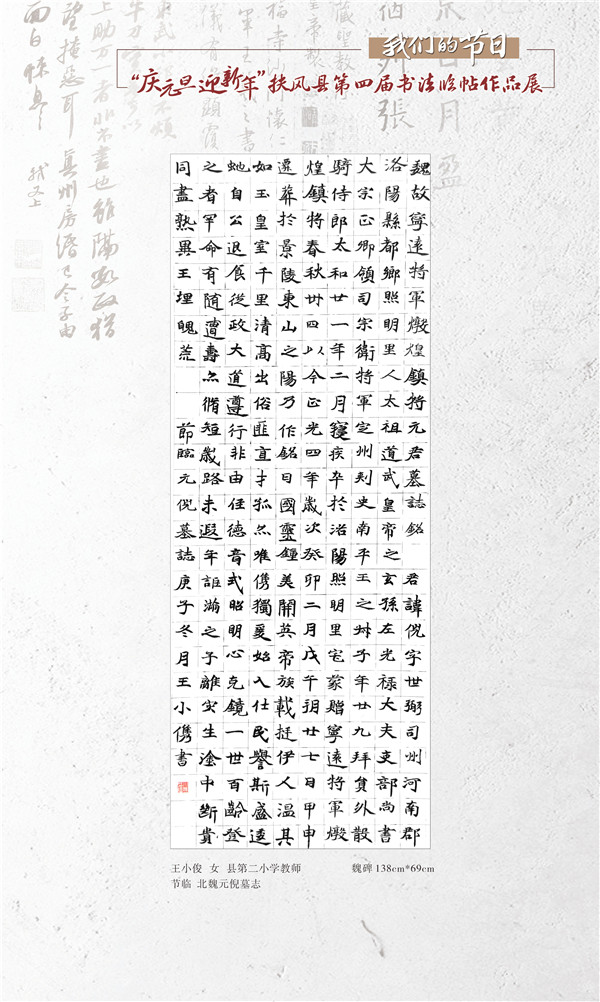 我们的节日
“庆元旦迎新年”扶风县第四届书法临帖作品展
魏故寧遠将軍燉煌鎮将元君墓誌銘 君諱倪字世弼司州河南郡
洛陽縣都鄉照明里人太祖道武皇帝之玄孫左光禄大夫吏部尚書
大宗正卿領司宗衛将軍定州刺史南平王之卌子年廿九拜員外散
騎侍郎太和廿一年二月寑疾卒於洛陽照明里宅蒙贈寧遠将軍燉
煌鎮将春秋卌四以今正光四年歲次癸卯二月戊午朔廿七日甲申
遷葬於景陵東山之陽乃作銘曰國靈鍾美開英帝族載挺伊人温其
如玉皇室千里清高出俗匪直才孤亦唯儁獨爰始入仕民譽斯盛逶
虵自公退食從政大道遵行非由任德音式昭明心克鏡一世百齡登
之者罕命有随遭壽亦脩短歲路未遐年誰
之子離
生塗中斷貴
同盡熟異王埋魄荒
節臨元倪墓誌庚子冬月王小儁書
王小俊 女 县第二小学教师 魏碑 138cm*69cm
节临 北魏元倪墓志